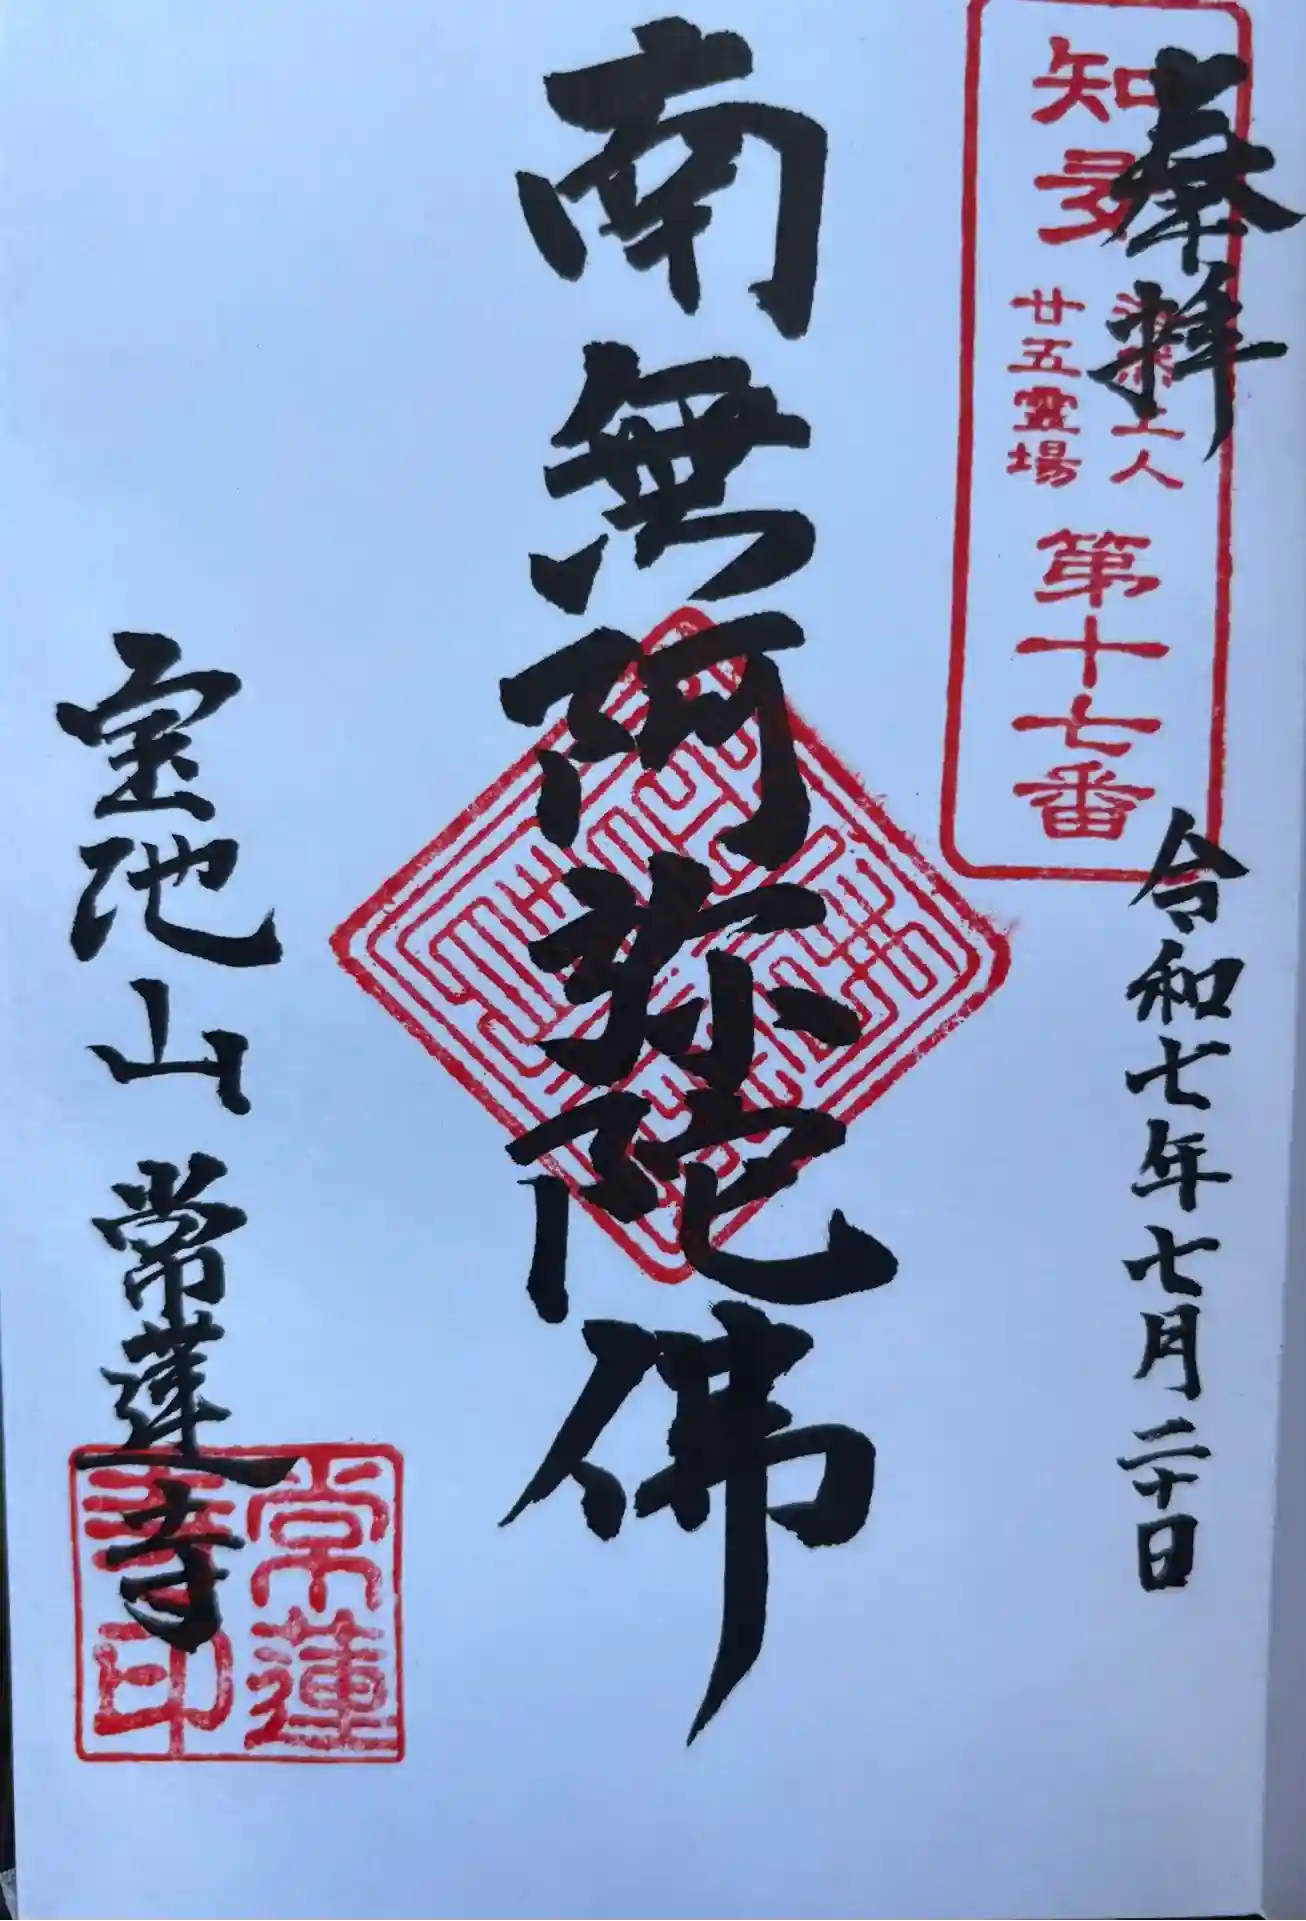 奉拝
知多
法然上人
廿五霊場
第十七番
令和七年七月二十日
南無阿弥陀佛
宝地山 常蓮寺
常蓮
寺印